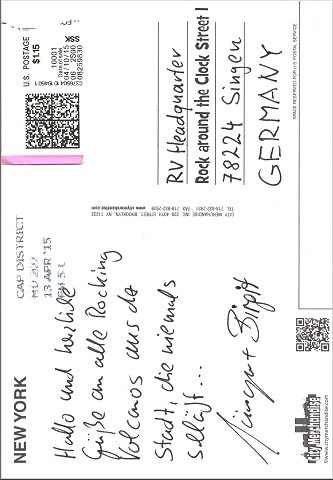 NEW YORK
CAP DISTRICT
13 APR '15
Hallo und herzliche
Grüße an alle Rocking
Volcanos aus der
Stadt, die niemals
schläft...
Jürgen + Birgit
U.S. POSTAGE
$1.15
SSK
10001
Date of sale
04/10/15
06 2S00
08259830
CITY MERCHANDISE INC. 228 40TH STREET, BROOKLYN, NY 11232
TEL. 718-832-2931 FAX 718-832-2939 www.citymerchandise.com
RV Headquarter
Rock around the Clock Street 1
78224 Singen
GERMANY
SPACE RESERVED FOR U.S. POSTAL SERVICE
city merchandise
©www.citymerchandise.com